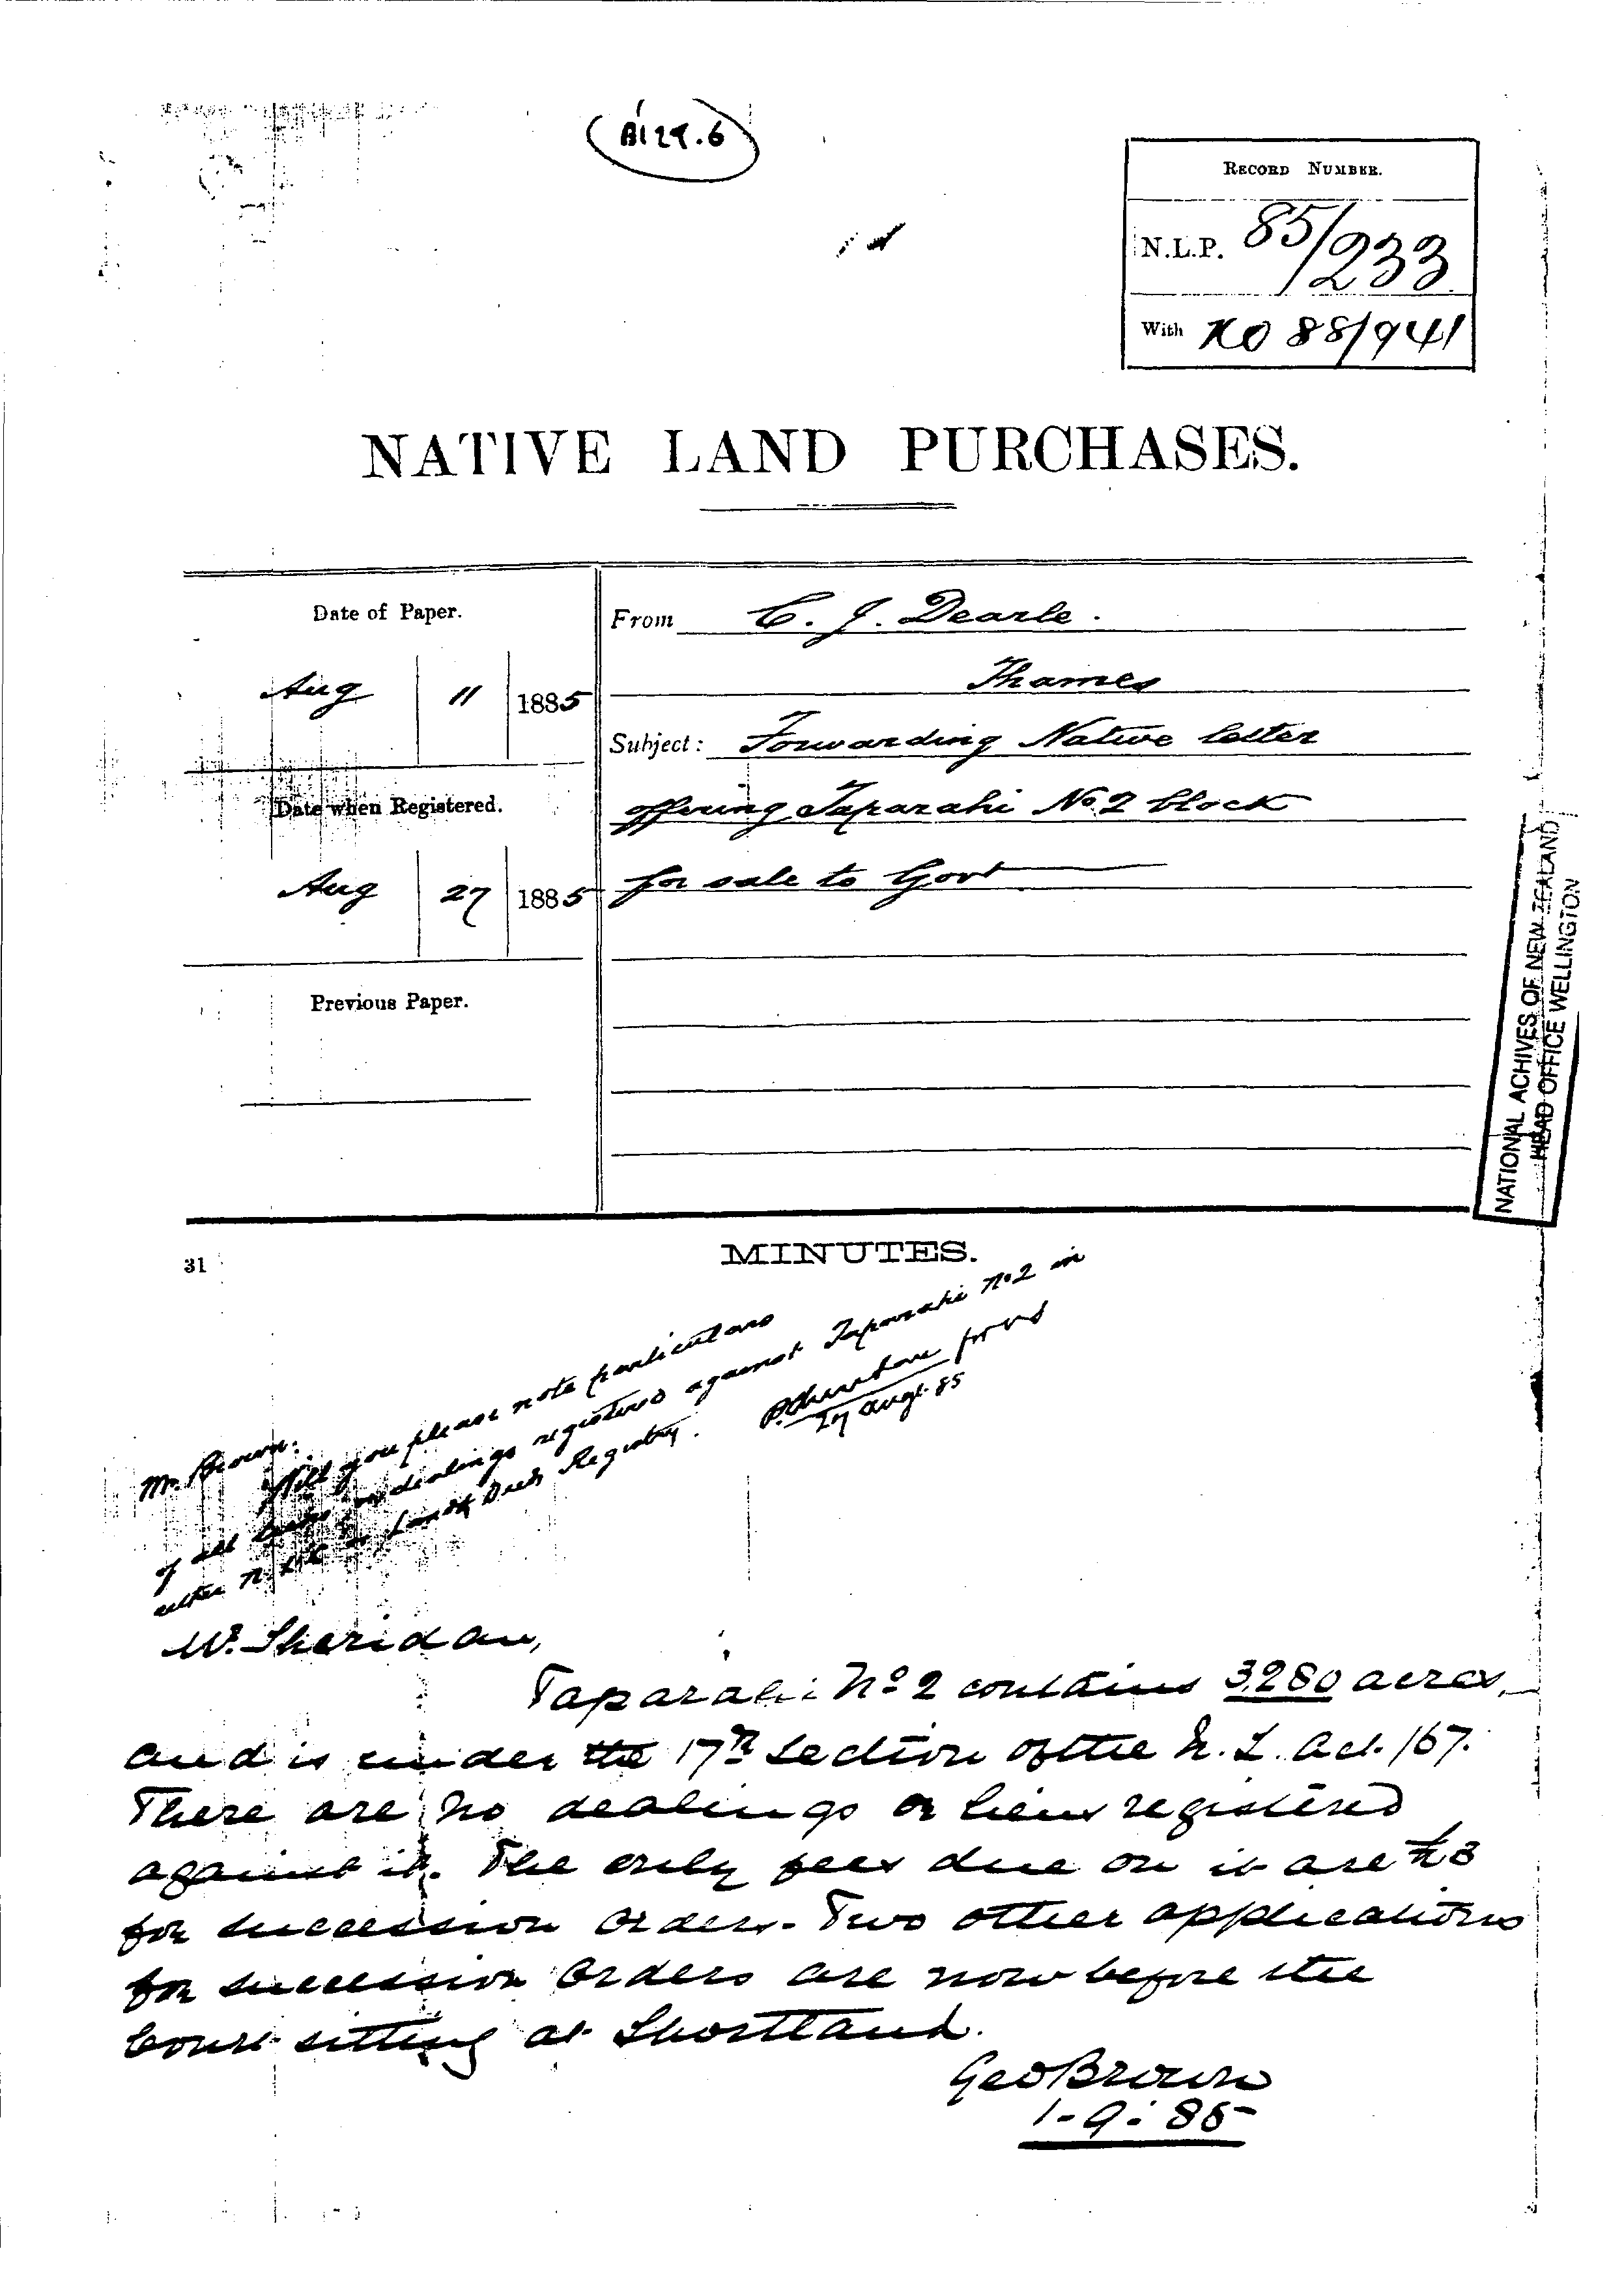 B129.6
RECORD NUMBER.
N.L.P. 85/233
With NO 88/941
NATIVE LAND PURCHASES.
Date of Paper.
Aug 11 1885
Date when Registered.
Aug 27 1885
Previous Paper.
From C. J. Dearle.
Thames
Subject: Forwarding Native letter
offering Taparahi No. 2 block
for sale to Govt
NATIONAL ACHIVES OF NEW ZEALAND
HEAD OFFICE WELLINGTON
31
MINUTES.
Mr. Brown.
Will you please note particulars
of all dealings registered against Taparahi No 2 in
either N. L. C. or Lands Deeds Registry.
27 Augt. 85
W. Sheridan,
Taparahi No 2 contains 3,280 acres,
and is under the 17th Section of the N. L. Act. /67.
There are no dealings or liens registered
against it. The only fees due on it are £3
for succession orders. Two other applications
for succession orders are now before the
Court sitting at Shortland.
Geo Brown
1-9-85